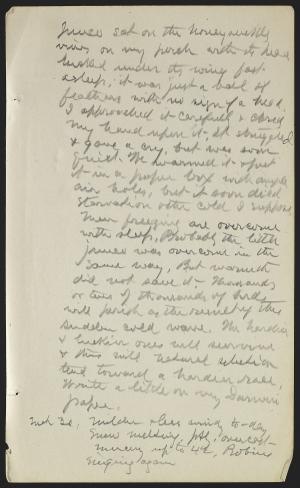 junco sat on the honeysuckle
vines on my porch with its head
tucked under its wing fast
asleep; it was just a ball of
feathers with no sign of a head.
I approached it carefully & closed
my hand upon it. It struggled
& gave a cry, but was soon
quiet. We warmed it & put
it in a paper box with ample
air holes, but it soon died
starvation & the cold I suppose
Men freezing are overcome
with sleep. Probably the little
junco was overcome in the
same way, But warmth
did not save it — Thousands
or tens of thousands of birds
will perish as the result of this
sudden cold wave. The hardier
& luckier ones will survive
& thus will natural selection
tend toward a hardier race.
Write a little on my Darwin
paper.
Mch 20, Milder & less wind to-day
Snow melting, ptly overcast —
Mercury up to 42, Robins
singing again